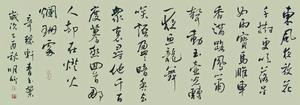 東風夜放花
千樹更吹落星
如雨寶馬雕車
香滿路鳳簫
聲動玉壺光轉
一夜魚龍舞
笑語盈盈暗香去
眾裏尋他千百
度驀然回首那
人卻在燈火
闌珊處
辛棄疾詞青玉案
歲次酉秋明